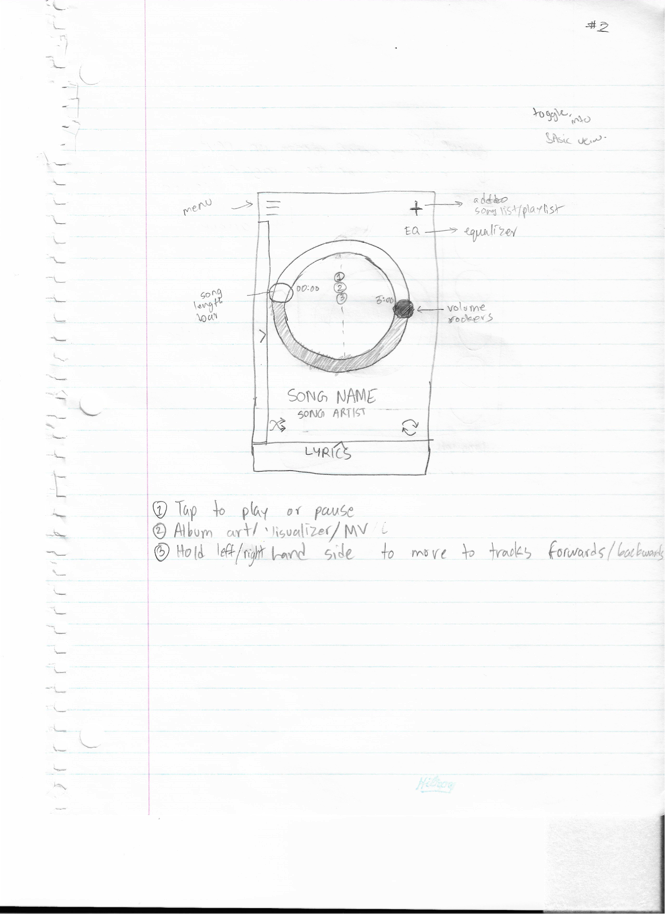 #2
toggle into
basic view.
menu
+
add to
song list/playlist
EQ
equalizer
song
length
bar
00:00
1
2
3
3:00
volume
rockers
SONG NAME
SONG ARTIST
LYRICS
① Tap to play or pause
② Album art/visualizer/MV
③ Hold left/right hand side to move to tracks forwards/backwards